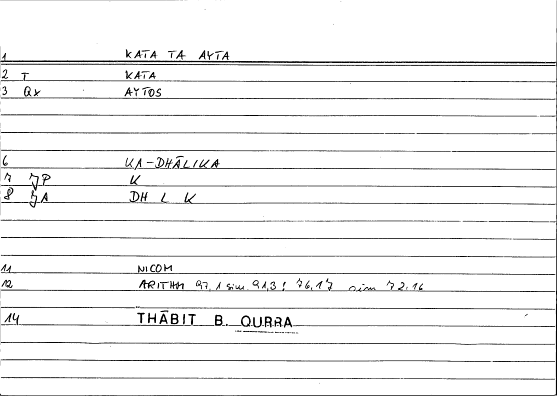 1 KATA TA AYTA
2 T KATA
3 Qx AYTOS
6 KA-DHĀLIKA
7 JP K
8 JA DH L K
11 NICOM
12 ARITHM 97,1 sim 91,3! 76,17 sim 72,16
14 THĀBIT B. QURRA